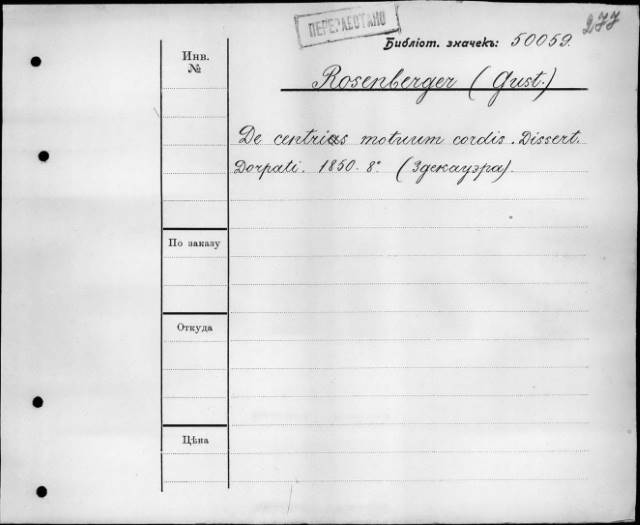 277
ПЕРЕРАБОТАНО
Библіот. значекъ: 50059.
Инв.
№
Rosenberger (Gust.)
De centris motuum cordis. Dissert.
Dorpati. 1850. 8°. (Здекауэра).
По заказу
Откуда
Цѣна